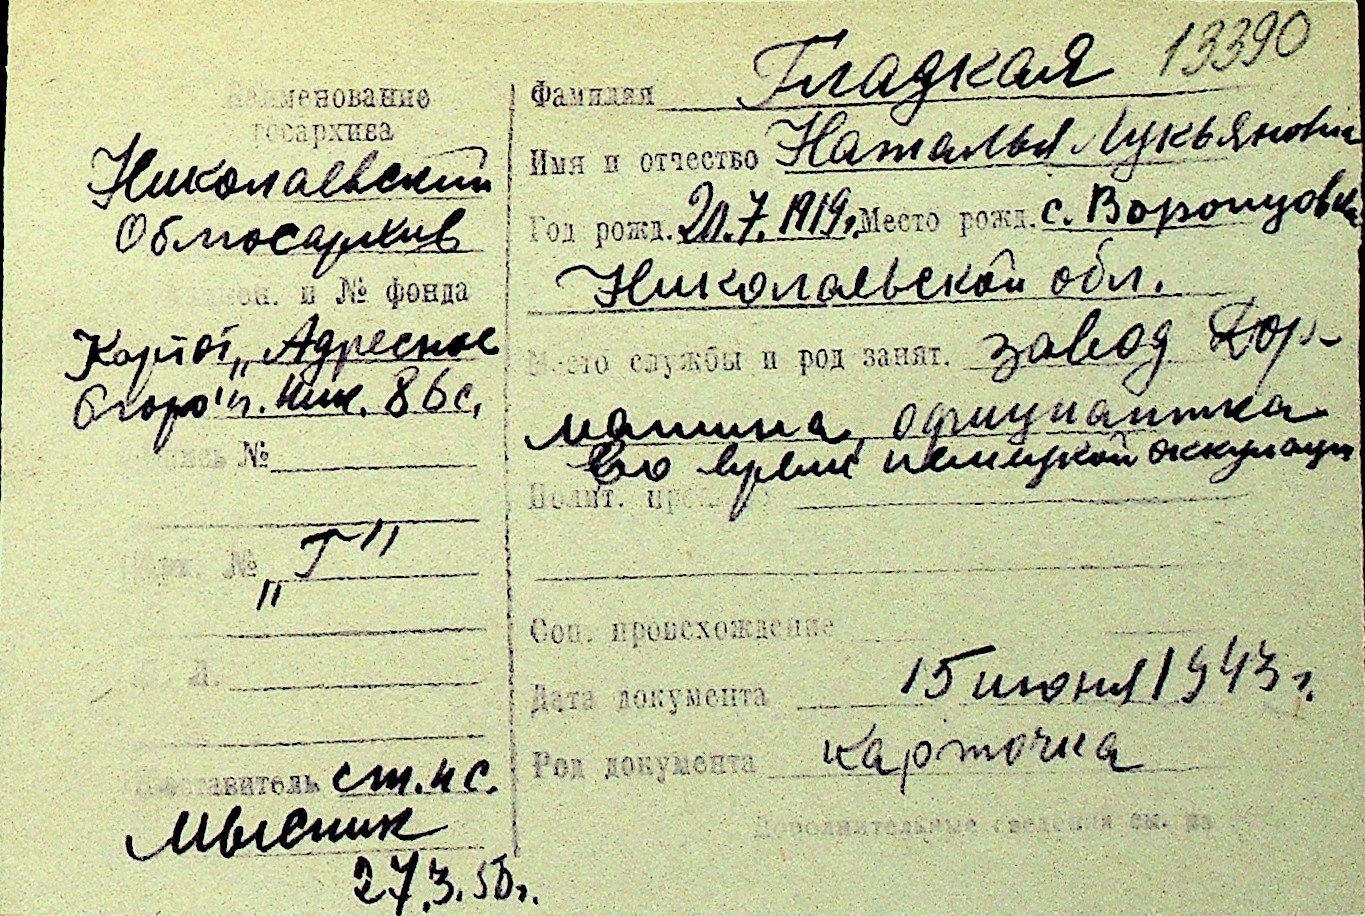 13390
Наименование
госархива
Николаевский
Облгосархив
и № фонда
Картот. „Адресное
бюро" г. Ник. 86 с.
Опись №
№ „Г"
Составитель ст. н с.
Мысник
27.3.50 г.
Фамилия Гладкая
Имя и отчество Наталья Лукьяновн
Год рожд. 20.7.1919 г. Место рожд. с. Воронцовка
Николаевской обл.
Место службы и род занят. завод Дор-
машина, официантка
Во время немецкой оккупации
Полит.
Соц. происхождение
Дата документа 15 июня 1943 г.
Род документа карточка
Дополнительные сведения см. на